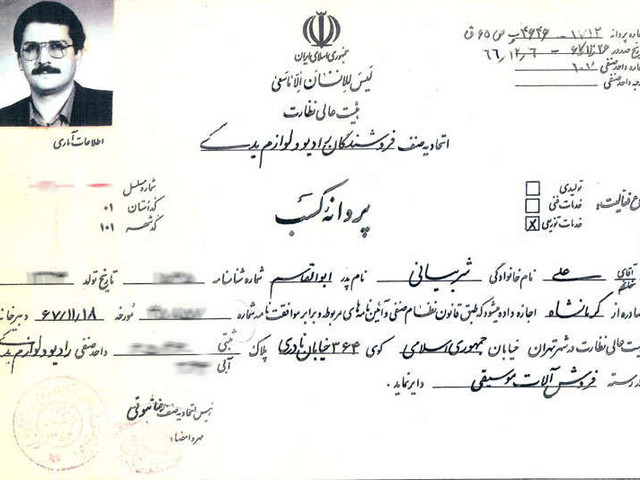 جمهوری اسلامی ایران
لَیسَ لِلاِنسانِ اِلّا ماسَعیٰ
هیئت عالی نظارت
اتحادیه صنف فروشندگان رادیو و لوازم یدکی
شماره پروانه
تاریخ صدور ۶۷/۱۱/۲۶ - ۶۶,۱۲,۶
شماره واحد صنفی
درجه واحد صنفی
اطلاعات آماری
شماره مسلسل
کد استان ۰۱
کد شهر ۱۰۱
پروانهٔ کسب
نوع فعالیت:
تولیدی
خدمات فنی
خدمات توزیعی X
آقای خانم علی نام خانوادگی شربیانی نام پدر ابوالقاسم شماره شناسنامه تاریخ تولد
صادره از کرمانشاه اجازه داده میشود که طبق قانون نظام صنفی و آئین نامه‌های مربوطه و برابر موافقت نامه شماره مورخه ۶۷/۱۱/۱۸ دبیرخانه
هیئت عالی نظارت در شهر تهران خیابان جمهوری اسلامی کوی ۳۶۴ خیابان نادری پلاک ثبتی آبی واحد صنفی رادیو و لوازم یدکی
در رسته فروش آلات موسیقی دایر نماید.
رئیس اتحادیه صنف رضا ثبوتی
مهر و امضاء: